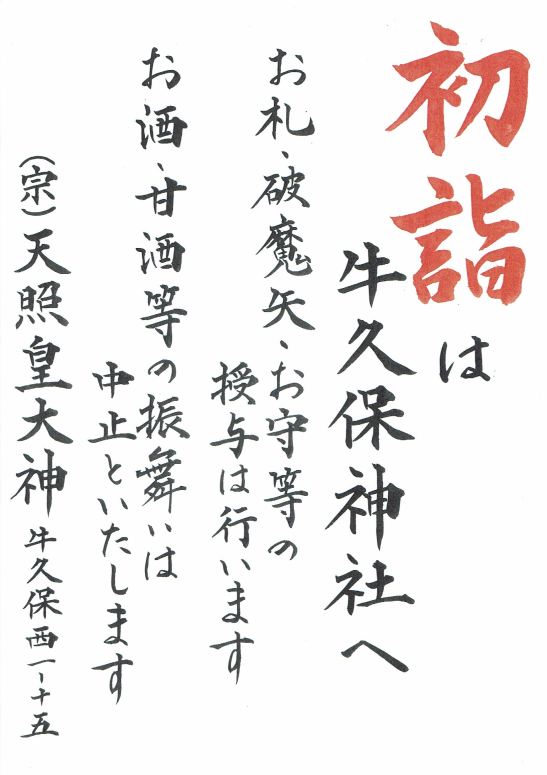 初詣は
牛久保神社へ
お札、破魔矢、お守等の
授与は行います
お酒、甘酒等の振舞いは
中止といたします
(宗)天照皇大神 牛久保西一-十五